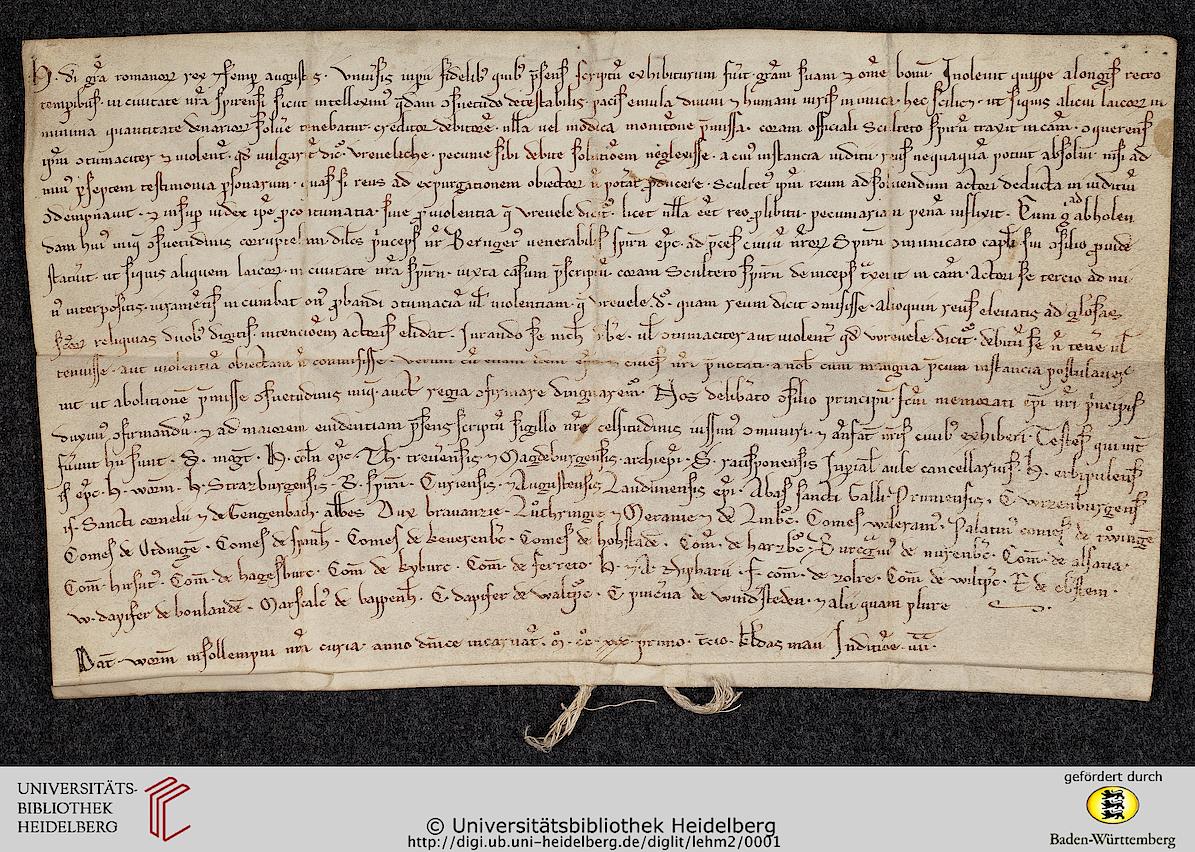 H. di gra romanor rex et semp august s. Universis imperii fidelib quib presens scriptu exhibitum fuerit gram suam et ome bonu. Inolevit quippe a longis retro
temporibus. in civitate nra spirensi sicut intelleximus qdam consuetudo detestabilis. pacis emula divini et humani iuris inimica. hec scilicet. ut siquis alicui laicor in
minima quantitate denarior solvere tenebatur. creditor debitore. ulla vel modica monitione pmissa. coram officiali Sculteto spiru traxit in cam. conquerens
ipm contumaciter et violent. qd vulgarit dic. vreveliche. pecunie sibi debite solutionem neglexisse. a cuius instancia iuditii reus nequaqua potuit absolvi. nisi ad
min p septem testimonia psonarum. quas si reus ad expurgationem obiector n potat pducere. Scultet ipm reum ad solvendum actori deducta in iuditiu
condempnavit. et insup iudex ipe p contumatia sive p violentia q vrevele dicit. licet nlla eet reo p libitu pecuniaria pena inflixit. Cum g ad abholen
dam hui iniq consuetudinis corruptelam. dilcs princeps nr Beruger venerabilis spirn epc. ad pces civiu nror Spirn communicato capli sui consilio provide
statuit. ut siquis aliquem laicor in civitate nra spirn. iuxta casum pscriptu coram Sculteto spirn deinceps traxerit in cam. Actori se tercio ad mi
n interpositis iuramtis incumbat on pbandi contumacia vl violentiam. q vrevele dr. quam reum dicit comisisse. alioquin reus elevatis ad gloriosas
scor reliquias duob digitis. intencioem actoris elidat. Iurando se nich debe. vl contumaciter aut violent qd vrevele dicit. debitu se n tene vl
tenuisse. aut violentia obiectam n commisisse. verum cu cives nri pnotati. a nob cum magna pcum instancia postulaver
int ut abolitione pmisse consuetudinis iniq auct regia confirmare dingnarem. Nos deliberato consilio principu scm memorati epi nri principis
duxim confirmandu. et ad maiorem evidentiam psens scriptu sigillo nre celsitudinis iussim communiri. et ansat nris civib exhiberi. Testes qui int
fuerunt hii sunt. S. magt. H. coln epc. Th. treverensis et Magdeburgensis archiepi. S. ratisponensis Impial aule cancellarius. H. erbipulens
is epc. H. worm. H. Strazburgensis. B. spirn. Curiensis. et Augustensis Laudunensis epi. Abas sancti Galli Prumensis. et Wizzenburgens
is. Sancti cornelii et de Gengenbach. abbes Dux bravantie. Luthringie et Meranie et de Linbc. Comes wilerami. Palatin comes de twinge
Comes de Otdinge. Comes de spanh. Comes de kevernbc. Comes de hohstade. Com de harzbc. Burcgvi de nurenbc. Com de alsatia.
Com hirsut. Com de hagesburc. Com de kyburc. Com de ferreto. H. et A. Riphatii. f. com de zolre. Com de witipc. E de ebstein.
W. dapifer de bonlanden. Marscalc de bappenh. E dapifer de waltpc. C pincerna de windsteden. et alii quam plure
Dat worm in sollempni nra curia. anno dnice incarnat. M. cc. xxx primo. tercio. kldas maii Inditioe. iiii.
UNIVERSITÄTS-
BIBLIOTHEK
HEIDELBERG
© Universitätsbibliothek Heidelberg
http://digi.ub.uni-heidelberg.de/diglit/lehm2/0001
gefördert durch
Baden-Württemberg